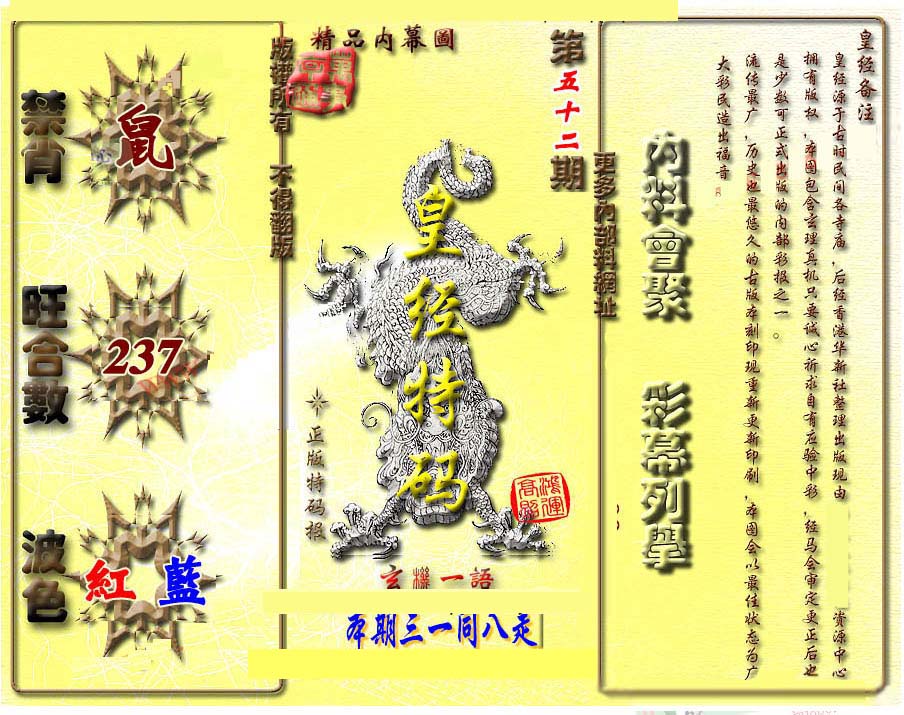 精品內幕圖
第五十二期
版權所有 不得翻版
禁肖
鼠
旺合數
237
波色
紅 藍
皇经特码
正版特码报
鴻運高照
玄機一語
本期三一同八走
更多內部料網址
內料會聚 彩幕列舉
皇经备注
皇经源于古时民间各寺庙，后经香港华新社整理出版现由 资源中心
拥有版权，本图包含玄理真机只要诚心祈求自有应验中彩，经马会审定更正后也
是少数可正式出版的内部彩报之一。
流传最广，历史也最悠久的古版本刻印现重新更新印刷，本图会以最佳状态为广
大彩民造出福音